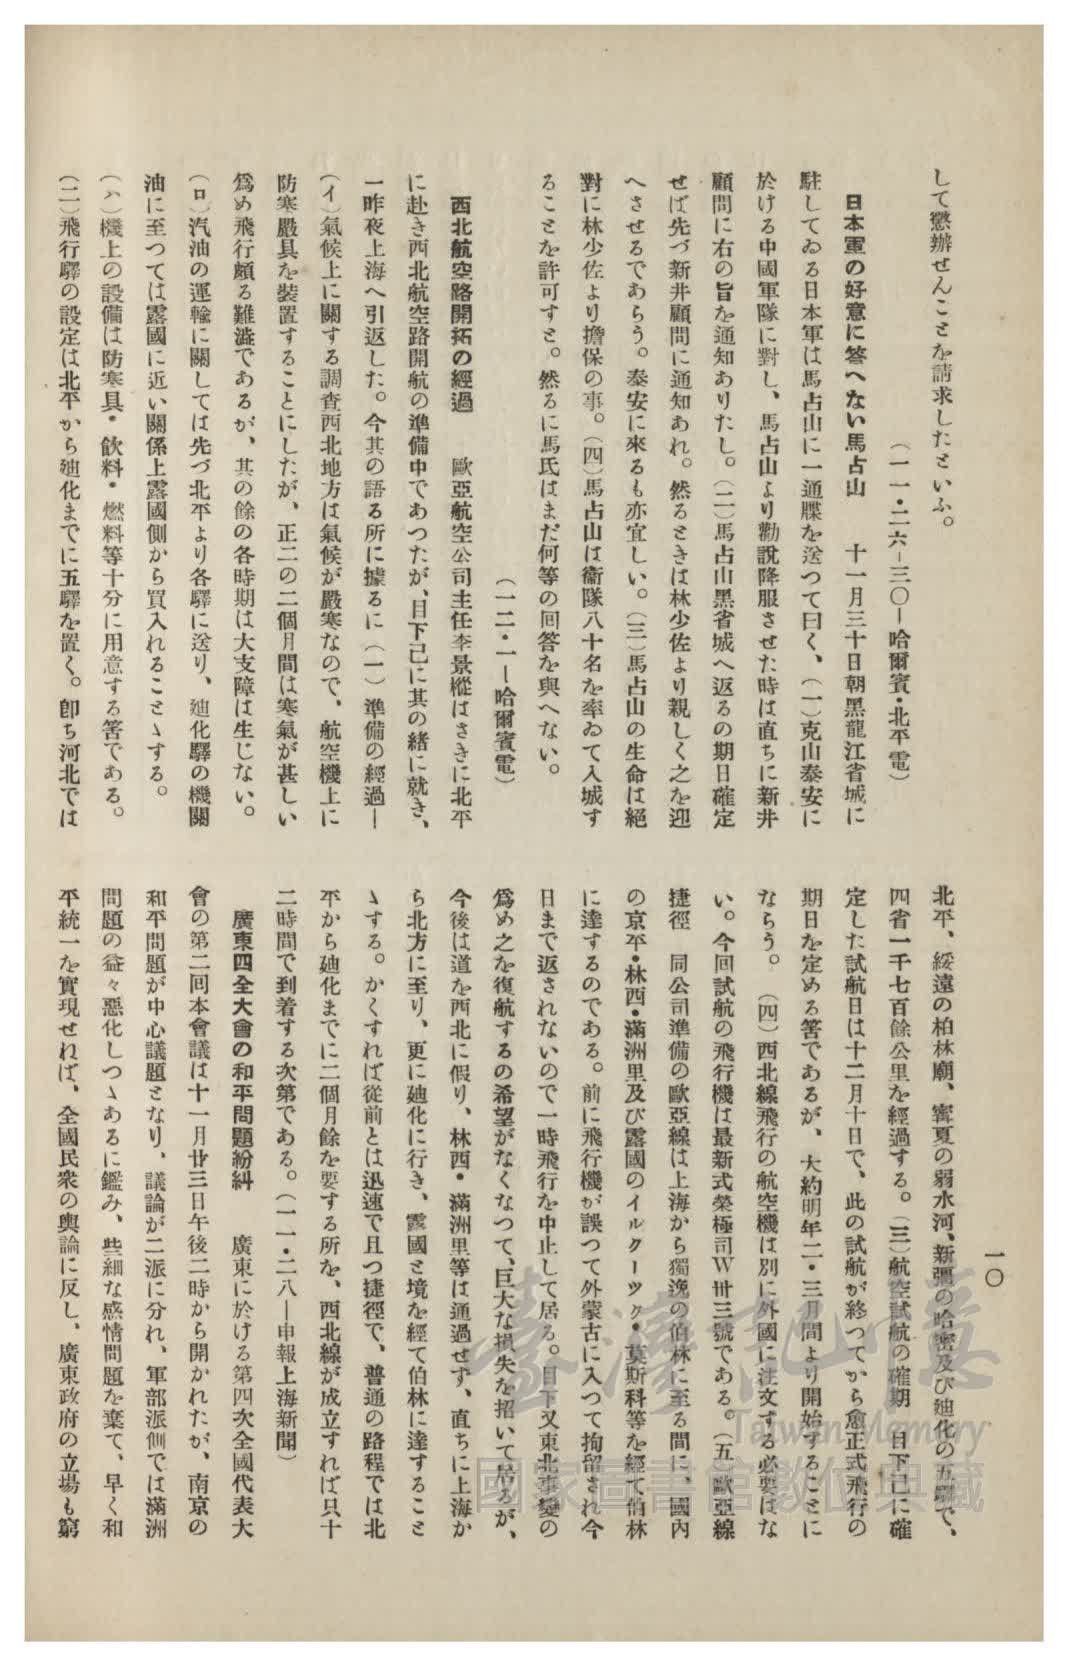 して懲辦せんことを請求したといふ。
(一一・二六―三〇―哈爾賓・北平電)
日本軍の好意に答へない馬占山　十一月三十日朝黑龍江省城に
駐してゐる日本軍は馬占山に一通牒を送つて曰く、(一)克山泰安に
於ける中國軍隊に對し、馬占山より勸說降服させた時は直ちに新井
顧問に右の旨を通知ありたし。(二)馬占山黑省城へ返るの期日確定
せば先づ新井顧問に通知あれ。然るときは林少佐より親しく之を迎
へさせるであらう。泰安に來るも亦宜しい。(三)馬占山の生命は絕
對に林少佐より擔保の事。(四)馬占山は衞隊八十名を率ゐて入城す
ることを許可すと。然るに馬氏はまだ何等の回答を與へない。
(一二・一―哈爾賓電)
西北航空路開拓の經過　歐亞航空公司主任李景樅はさきに北平
に赴き西北航空路開航の準備中であつたが、目下已に其の緖に就き、
一昨夜上海へ引返した。今其の語る所に據るに(一)準備の經過―
(イ)氣候上に關する調查西北地方は氣候が嚴寒なので、航空機上に
防寒嚴具を裝置することにしたが、正二の二個月間は寒氣が甚しい
爲め飛行頗る難澁であるが、其の餘の各時期は大支障は生じない。
(ロ)汽油の運輸に關しては先づ北平より各驛に送り、廸化驛の機關
油に至つては露國に近い關係上露國側から買入れることゝする。
(ハ)機上の設備は防寒具・飮料・燃料等十分に用意する筈である。
(二)飛行驛の設定は北平から廸化までに五驛を置く。卽ち河北では
北平、綏遠の柏林廟、寗夏の弱水河、新疆の哈密及び廸化の五驛で、
四省一千七百餘公里を經過する。(三)航空試航の確期　目下已に確
定した試航日は十二月十日で、此の試航が終つてから愈正式飛行の
期日を定める筈であるが、大約明年二・三月間より開始することに
ならう。　(四)西北線飛行の航空機は別に外國に注文する必要はな
い。今回試航の飛行機は最新式榮極司W卅三號である。(五)歐亞線
捷徑　同公司準備の歐亞線は上海から獨逸の伯林に至る間に、國內
の京平・林西・滿洲里及び露國のイルクーツク・莫斯科等を經て伯林
に達するのである。前に飛行機が誤つて外蒙古に入つて拘留され今
日まで返されないので一時飛行を中止して居る。目下又東北事變の
爲め之を復航するの希望がなくなつて、巨大な損失を招いて居るが、
今後は道を西北に假り、林西・滿洲里等は通過せず、直ちに上海か
ら北方に至り、更に廸化に行き、露國と境を經て伯林に達すること
ゝする。かくすれば從前とは迅速で且つ捷徑で、普通の路程では北
平から廸化までに二個月餘を要する所を、西北線が成立すれば只十
二時間で到着する次第である。(一一・二八―申報上海新聞)
廣東四全大會の和平問題紛糾　廣東に於ける第四次全國代表大
會の第二回本會議は十一月廿三日午後二時から開かれたが、南京の
和平問題が中心議題となり、議論が二派に分れ、軍部派側では滿洲
問題の益々惡化しつゝあるに鑑み、些細な感情問題を棄て、早く和
平統一を實現せねば、全國民衆の輿論に反し、廣東政府の立場も窮
一〇
臺灣記憶
Taiwan Memory
國家圖書館數位典藏